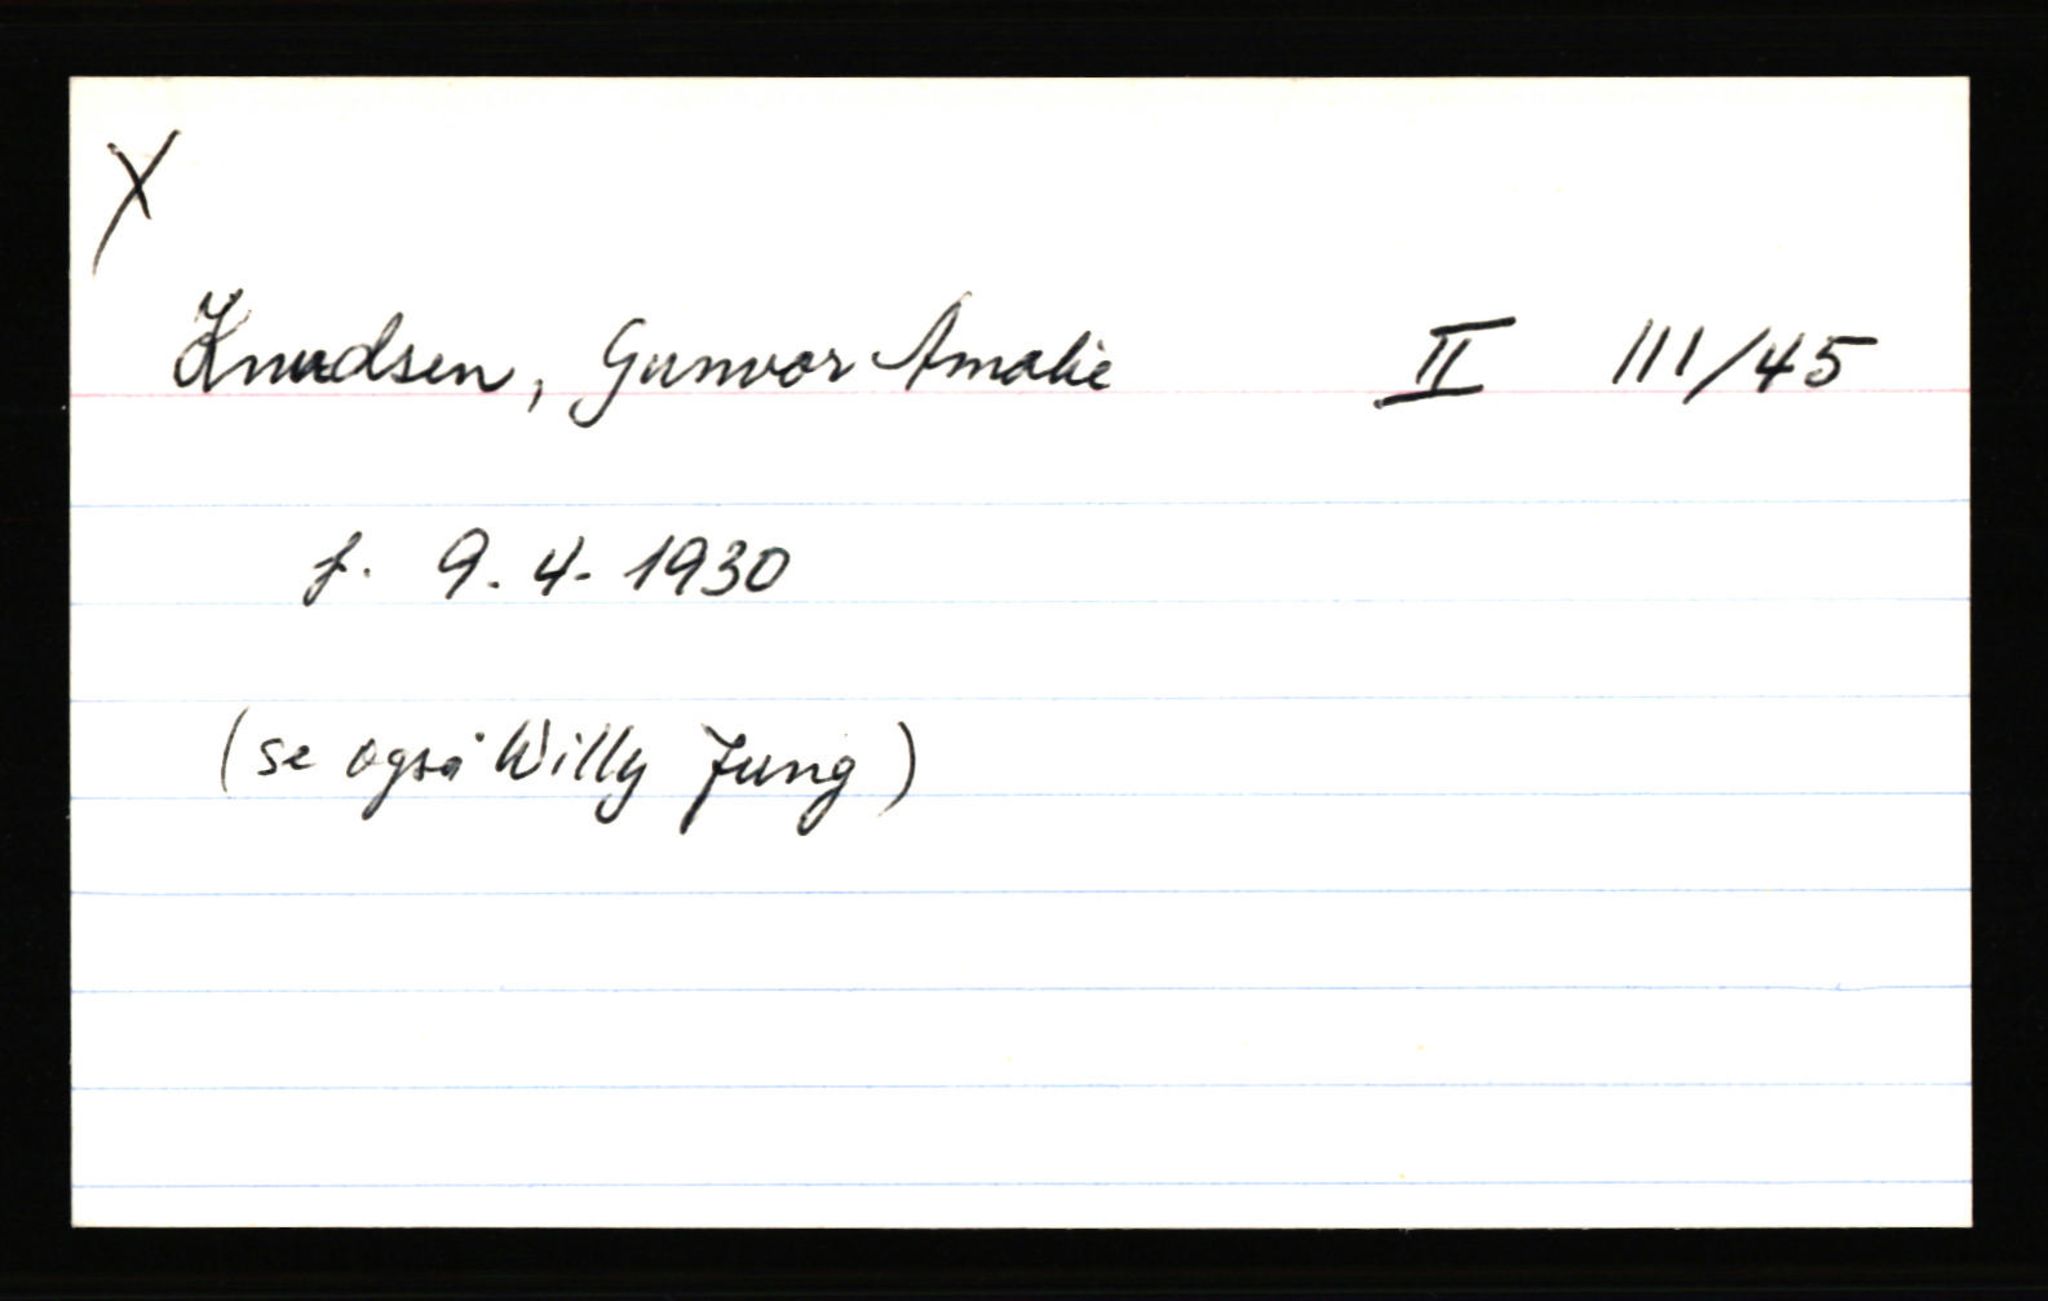 X
Knudsen, Gunvor Amalie II 111/45
f. 9.4-1930
(se også Willy Jung)